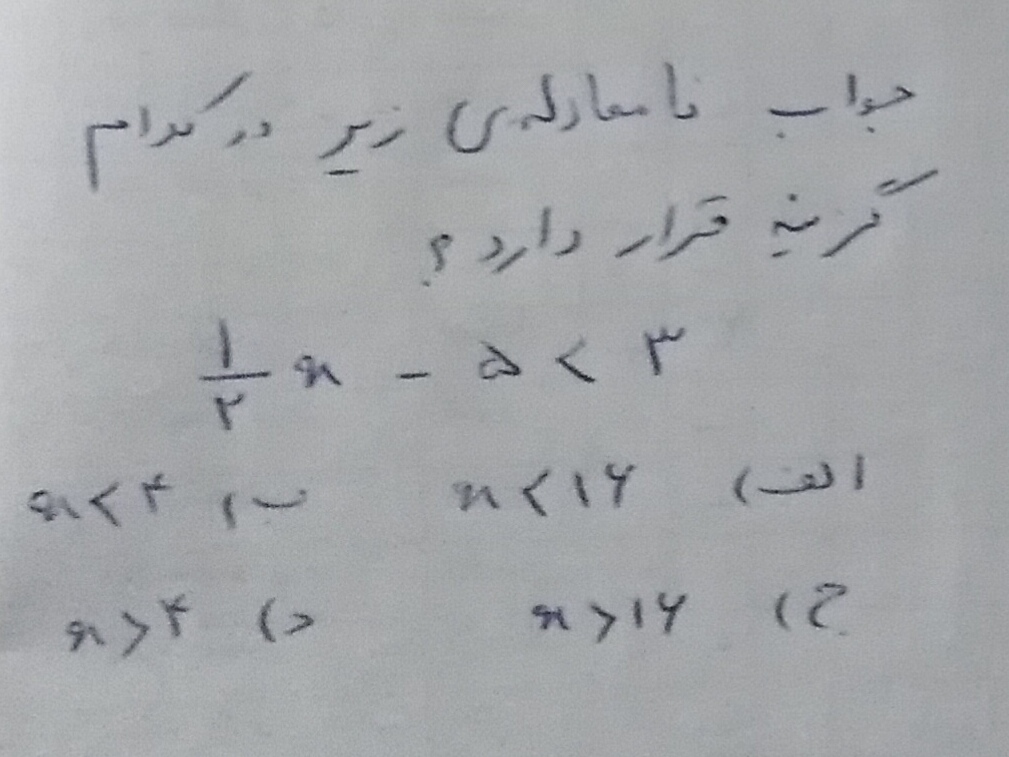 جواب نامعادله‌ی زیر در کدام
گزینه قرار دارد ؟
۱/۲ x - ۵ < ۳
الف) x < ۱۶ ب) x < ۴
ج) x > ۱۶ د) x > ۴